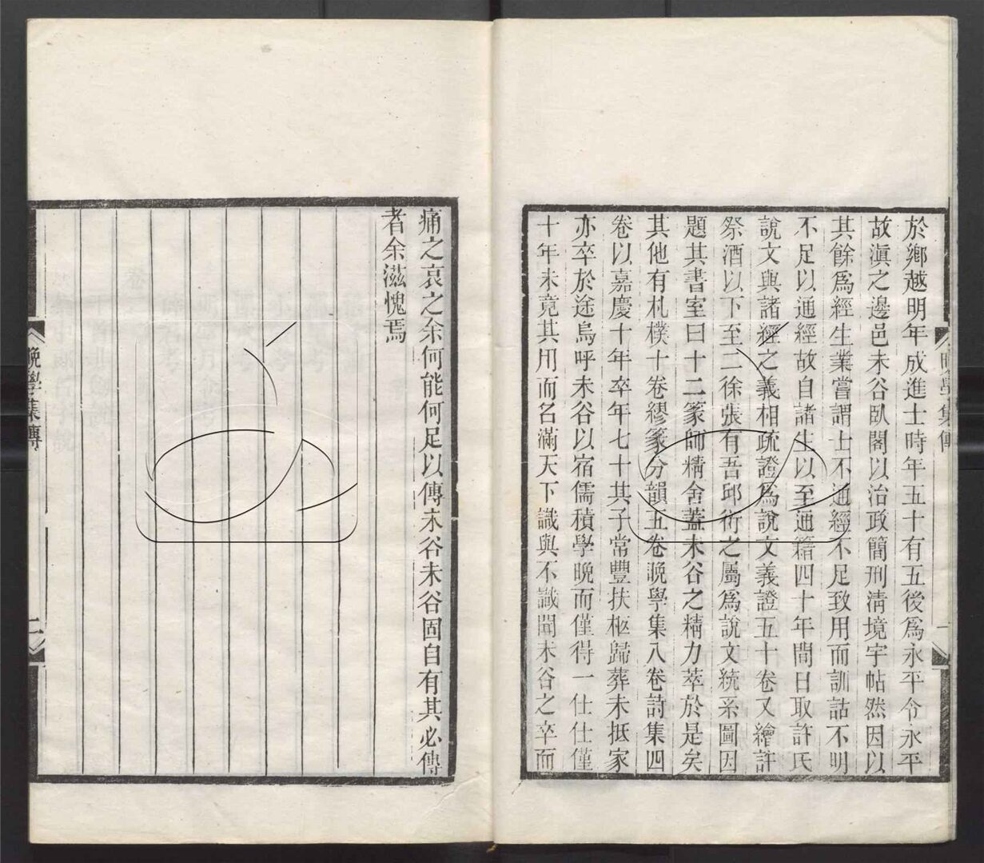 於鄉越明年成進士時年五十有五後爲永平令永平
故滇之邊邑未谷臥閣以治政簡刑清境宇帖然因以
其餘爲經生業嘗謂士不通經不足致用而訓詁不明
不足以通經故自諸生以至通籍四十年間日取許氏
說文與諸經之義相疏證爲說文義證五十卷又繪許
祭酒以下至二徐張有吾邱衍之屬爲說文統系圖因
題其書室曰十二篆師精舍蓋未谷之精力萃於是矣
其他有札樸十卷繆篆分韻五卷晚學集八卷詩集四
卷以嘉慶十年卒年七十其子常豐扶柩歸葬未抵家
亦卒於途烏呼未谷以宿儒積學晚而僅得一仕仕僅
十年未竟其用而名滿天下識與不識聞未谷之卒而
晚學集傳
一
痛之哀之余何能何足以傳未谷未谷固自有其必傳
者余滋愧焉
晚學集傳
二